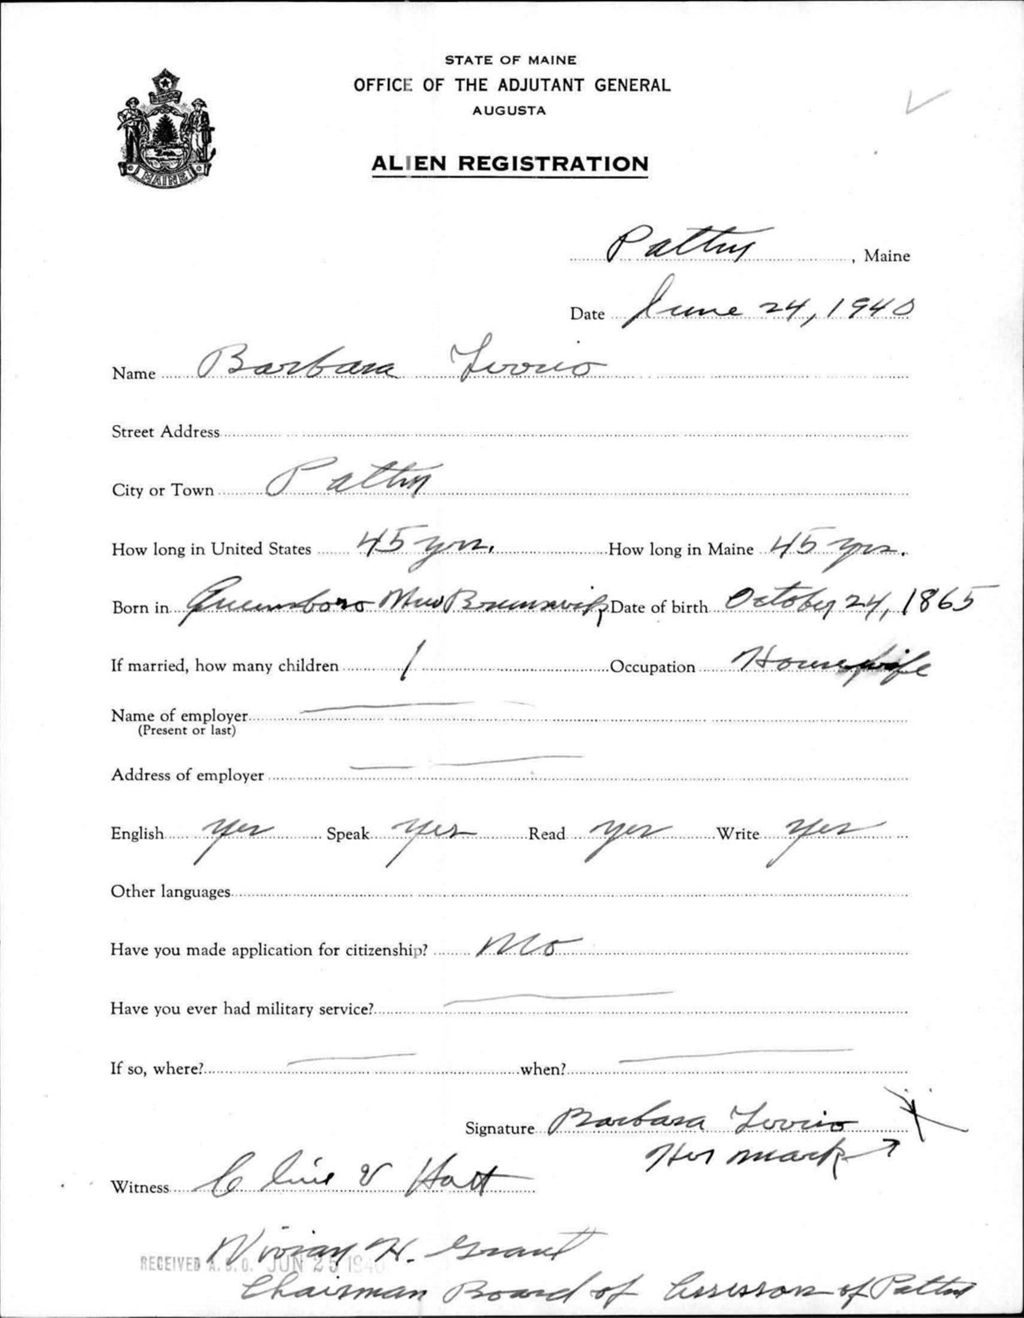 STATE OF MAINE
OFFICE OF THE ADJUTANT GENERAL
AUGUSTA
ALIEN REGISTRATION
MAINE
Patten, Maine
Date June 24, 1940
Name Barbara
Street Address
City or Town Patten
How long in United States 45 yrs. How long in Maine 45 yrs.
Born in Greensboro New Brunswick Date of birth October 24, 1865
If married, how many children 1 Occupation Housewife
Name of employer
(Present or last)
Address of employer
English Yes Speak Yes Read Yes Write Yes
Other languages
Have you made application for citizenship? No
Have you ever had military service?
If so, where? when?
Signature Barbara X
Her mark
Witness
Vivian H. Grant
RECEIVED A.G.O. JUN 25 1940
Chairman Board of Assessors of Patten